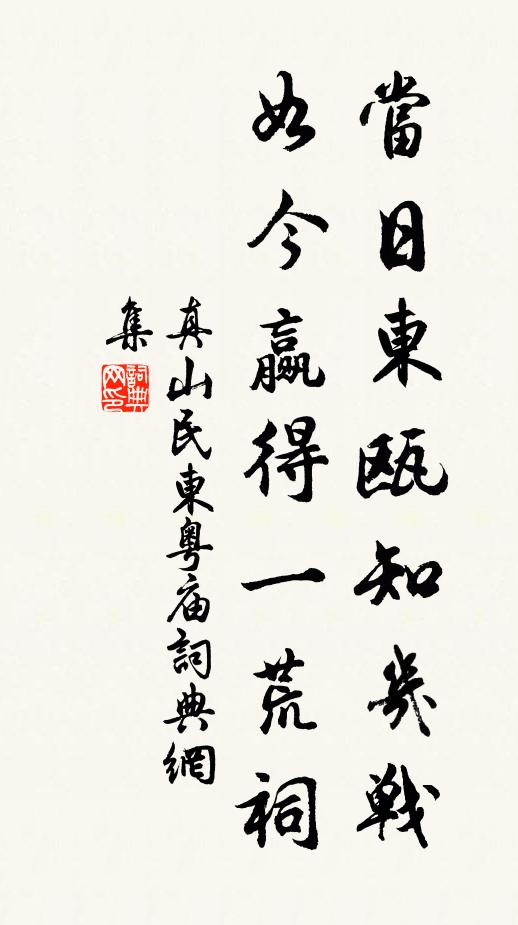 當日東甌知幾戰
如今贏得一荒祠
真山民東粵庙詞典網
集
詞典网印